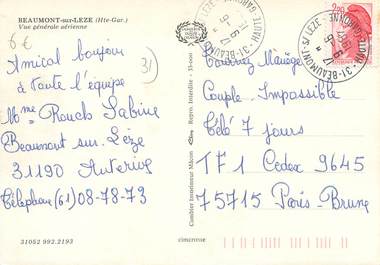 BEAUMONT-sur-LEZE (Hte-Gar.)
Vue générale aérienne
6€
31
Amical bonjour
à toute l'équipe
Mme Rouch Sabine
Beaumont sur Lèze
31190 Auterive
Téléphone (61) 08-78-73
31052 992.2193
Combier Imprimeur Mâcon
Repro. Interdite - 35-1001
cimcrosse
31-BEAUMONT-S/LEZE
HAUTE-GARONNE
17 H
2,20
Courrier Manège
Couple Impossible
Télé 7 jours
TF1 Cedex 9645
75715 Paris-Brune